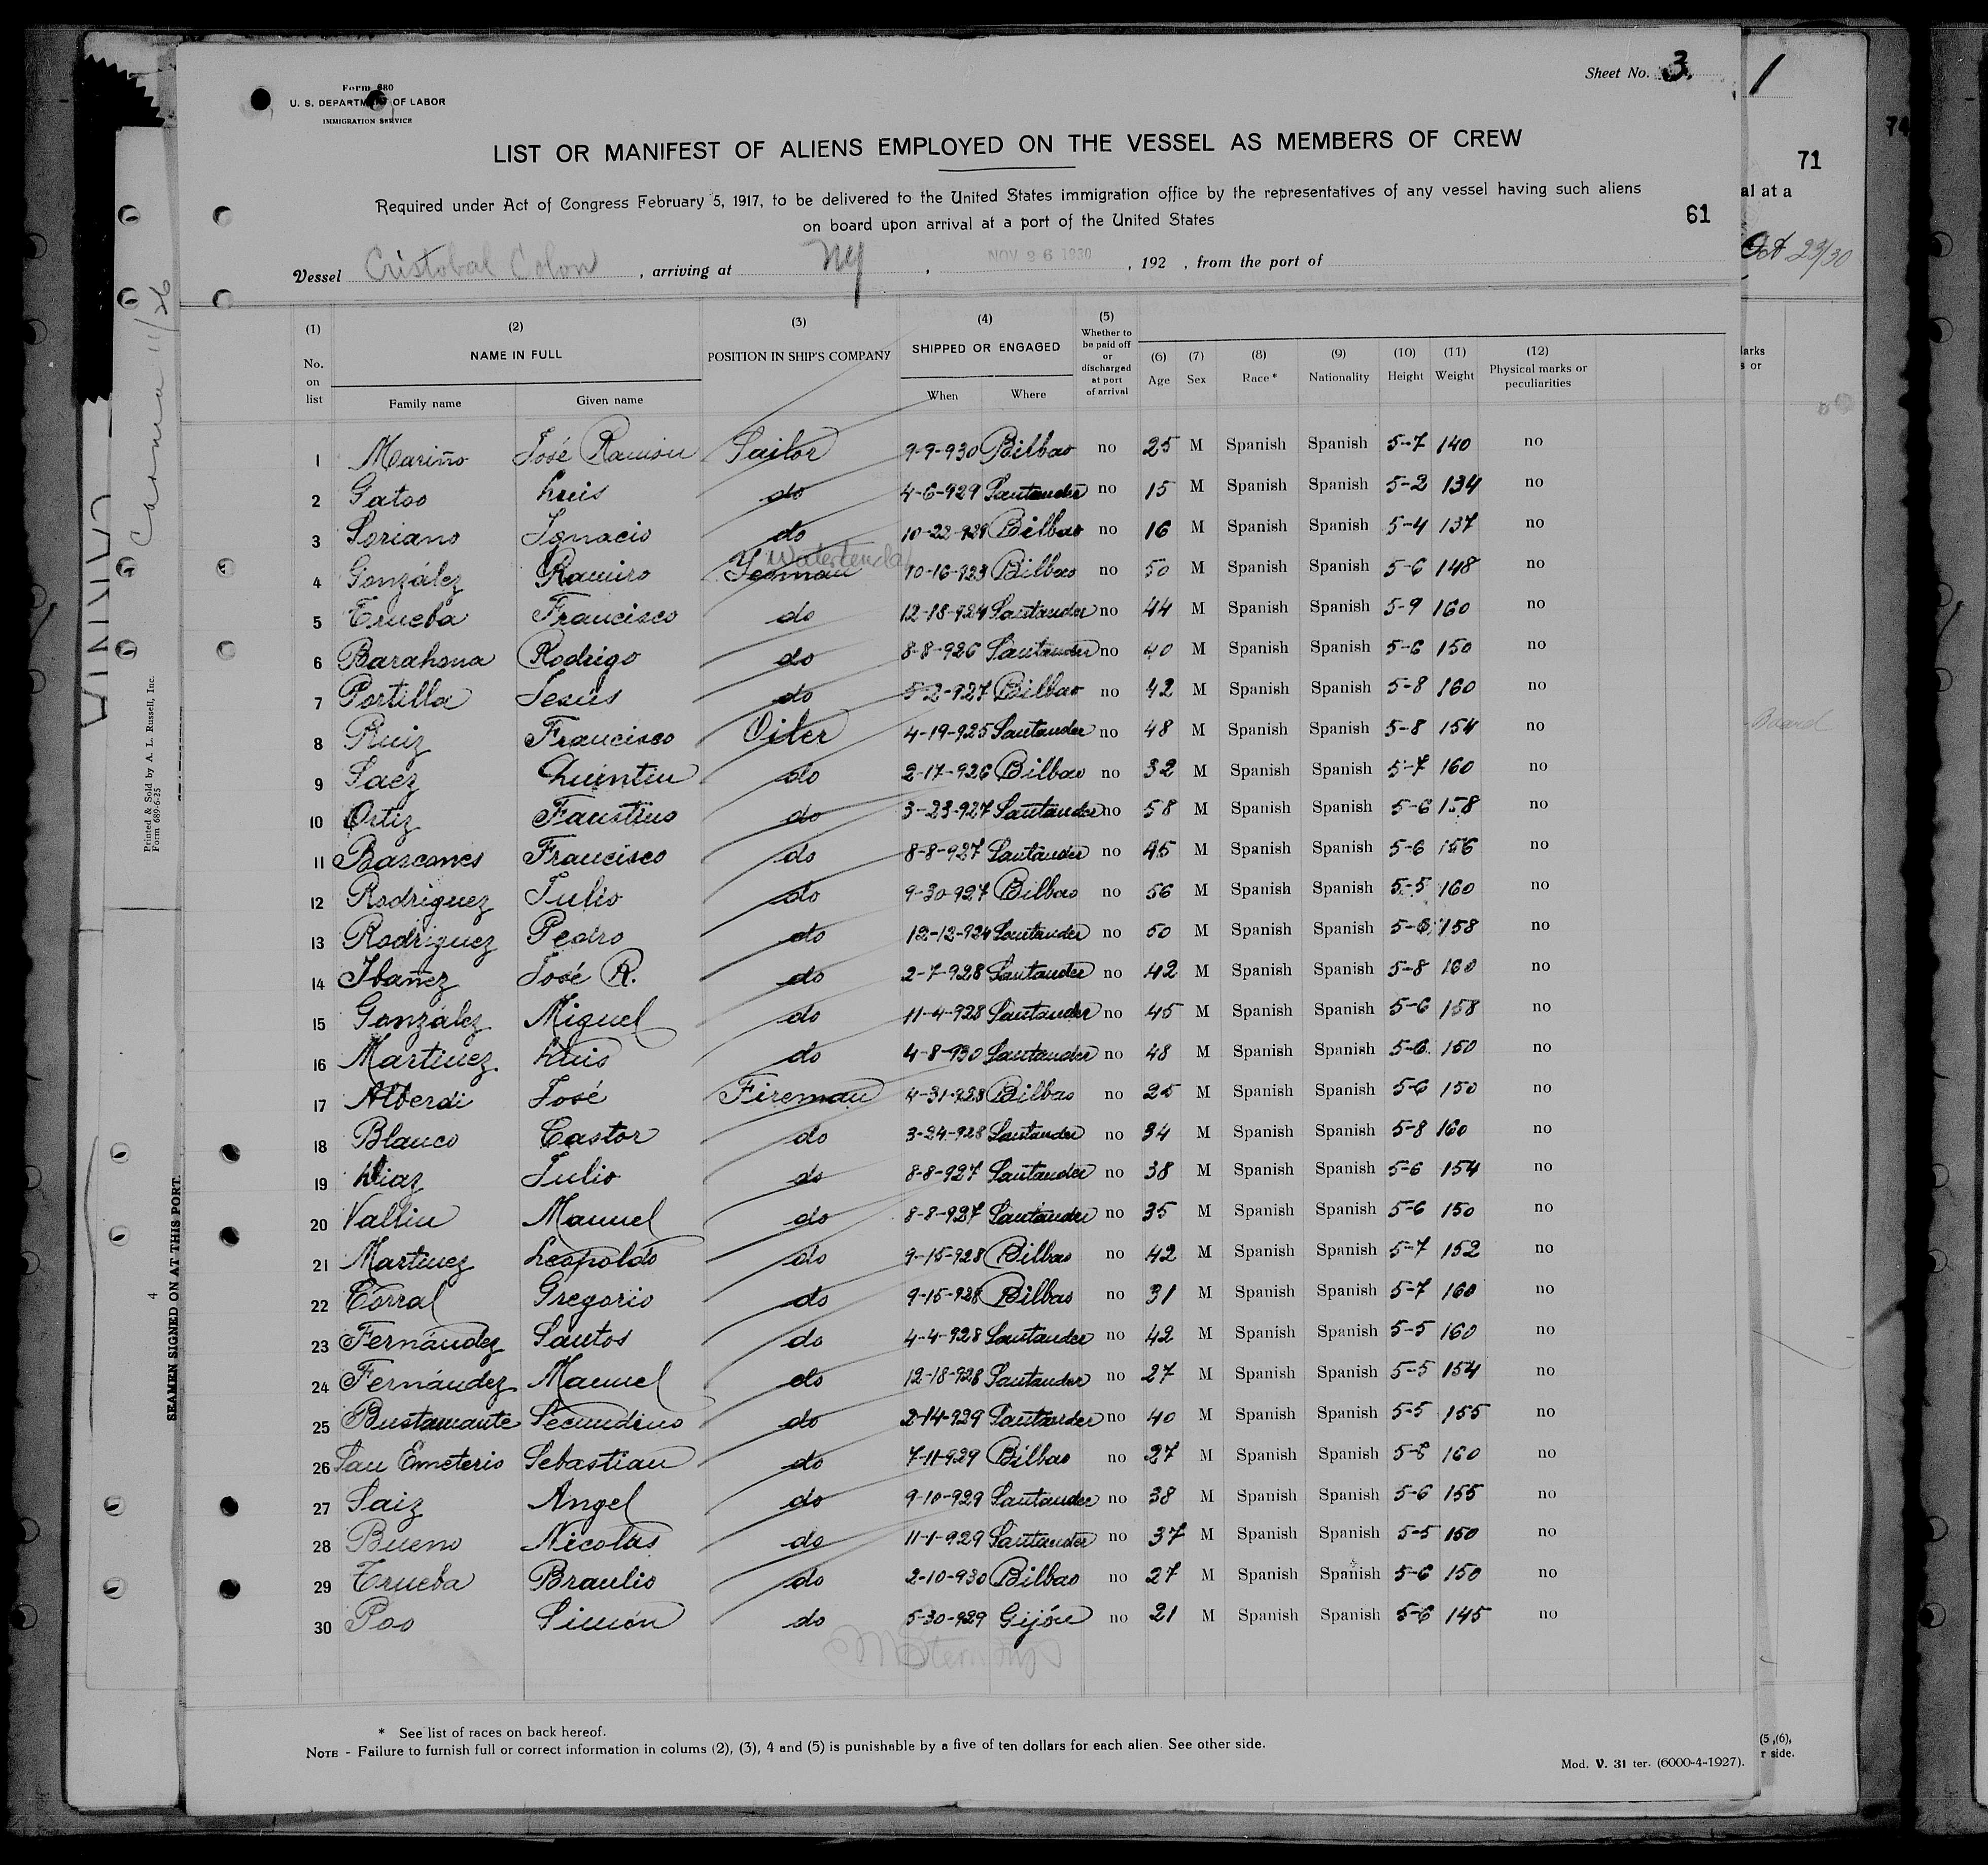 Form 680
U. S. DEPARTMENT OF LABOR
IMMIGRATION SERVICE
Sheet No. 3.
1
LIST OR MANIFEST OF ALIENS EMPLOYED ON THE VESSEL AS MEMBERS OF CREW
71
74
Required under Act of Congress February 5, 1917, to be delivered to the United States immigration office by the representatives of any vessel having such aliens
on board upon arrival at a port of the United States
61
al at a
Oct 23/30
Vessel Cristobal Colon, arriving at NY, NOV 26 1930, 192 , from the port of
(1) No. on list
(2) NAME IN FULL Family name Given name
(3) POSITION IN SHIP'S COMPANY
(4) SHIPPED OR ENGAGED When Where
(5) Whether to be paid off or discharged at port of arrival
(6) Age
(7) Sex
(8) Race*
(9) Nationality
(10) Height
(11) Weight
(12) Physical marks or peculiarities
1 Mariño José Ramion Sailor 9-9-930 Bilbao no 25 M Spanish Spanish 5-7 140 no
2 Gatoo Luis do 4-6-929 Santander no 15 M Spanish Spanish 5-2 134 no
3 Soriano Ignacio do 10-22-929 Bilbao no 16 M Spanish Spanish 5-4 137 no
Watertender
4 González Ramiro Yeoman 10-16-923 Bilbao no 50 M Spanish Spanish 5-6 148 no
5 Trueba Francisco do 12-18-924 Santander no 44 M Spanish Spanish 5-9 160 no
6 Barahona Rodrigo do 8-8-926 Santander no 40 M Spanish Spanish 5-6 150 no
7 Portilla Jesús do 5-2-927 Bilbao no 42 M Spanish Spanish 5-8 160 no
8 Ruiz Francisco Oiler 4-19-925 Santander no 48 M Spanish Spanish 5-8 154 no
9 Saez Quintin do 2-17-926 Bilbao no 32 M Spanish Spanish 5-7 160 no
10 Ortiz Faustino do 3-23-927 Santander no 58 M Spanish Spanish 5-6 158 no
11 Bascones Francisco do 8-8-927 Santander no 45 M Spanish Spanish 5-6 156 no
12 Rodriguez Julio do 9-30-927 Bilbao no 56 M Spanish Spanish 5-5 160 no
13 Rodriguez Pedro do 12-12-924 Santander no 50 M Spanish Spanish 5-6 158 no
14 Ibañez José R. do 2-7-928 Santander no 42 M Spanish Spanish 5-8 160 no
15 González Miguel do 11-4-928 Santander no 45 M Spanish Spanish 5-6 158 no
16 Martinez Luis do 4-8-930 Santander no 48 M Spanish Spanish 5-6 150 no
17 Alberdi José Fireman 4-31-928 Bilbao no 25 M Spanish Spanish 5-6 150 no
18 Blanco Castor do 3-24-928 Santander no 34 M Spanish Spanish 5-8 160 no
19 Diaz Julio do 8-8-927 Santander no 38 M Spanish Spanish 5-6 154 no
20 Vallin Manuel do 8-8-927 Santander no 35 M Spanish Spanish 5-6 150 no
21 Martinez Leopoldo do 9-15-928 Bilbao no 42 M Spanish Spanish 5-7 152 no
22 Corral Gregorio do 9-15-928 Bilbao no 31 M Spanish Spanish 5-7 160 no
23 Fernández Santos do 4-4-928 Santander no 42 M Spanish Spanish 5-5 160 no
24 Fernández Manuel do 12-18-928 Santander no 27 M Spanish Spanish 5-5 154 no
25 Bustamante Secundino do 2-14-929 Santander no 40 M Spanish Spanish 5-5 155 no
26 San Emeterio Sebastian do 7-11-929 Bilbao no 27 M Spanish Spanish 5-6 160 no
27 Saiz Angel do 9-10-929 Santander no 38 M Spanish Spanish 5-6 155 no
28 Bueno Nicolás do 11-1-929 Santander no 37 M Spanish Spanish 5-5 150 no
29 Trueba Braulio do 2-10-930 Bilbao no 27 M Spanish Spanish 5-6 150 no
30 Poo Simón do 5-30-929 Gijón no 21 M Spanish Spanish 5-6 145 no
* See list of races on back hereof.
NOTE - Failure to furnish full or correct information in colums (2), (3), 4 and (5) is punishable by a five of ten dollars for each alien. See other side.
Mod. V. 31 ter. (6000-4-1927).
(5 ,(6),
r side.
arks
s or
Board
Printed & Sold by A. L. Russell, Inc.
Form 689-6-25
4
SEAMEN SIGNED ON AT THIS PORT.